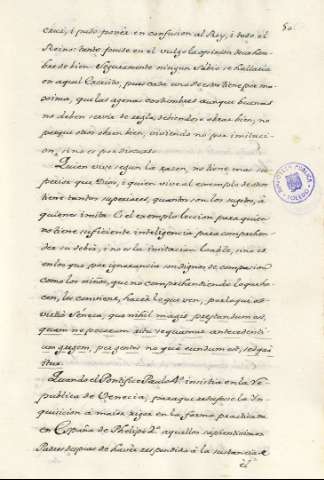 50
cruz, i pudo poner en confusion al Rey, i todo el
Reino: tanto puede en el vulgo la opinion de un hom-
bre de bien. Seguramente ningun Sabio se hallaria
en aquel Exercito, pues cada uno de estos tiene por ma-
xima, que las agenas costumbres aunque buenas
no deben servir de regla, debiendose obrar bien, no
porque otros obren bien, viviendo no por imitacion,
si no es por discurso.
Quien vive segun la razon, no tiene mas su-
perior que Dios, i quien vive al exemplo de otros
tiene tantos superiores, quantos son los sugetos, à
quienes imita. Es el exemplo leccion para quien
no tiene suficiente inteligencia para comprehen-
der su debèr, i no es la imitacion loable, sino es
en los que por ignorancia son dignos de compasion
como los niños, que no comprehendiendo lo que ha-
cen, les conviene, hacer lo que ven, por lo que ad-
virtiò Seneca, que nihil magis prestandum est,
quam ne pecorum ritu sequamur antecedenti-
um gregem, pergentes no quà eundum est, sed quà
itur.
Quando el Pontifice Paulo 4º insistia en la Re-
publica de Venecia, para que reduxese la In-
quisicion à maior rigor en la forma practicada
en España de Phelipe 2º aquellos sapientisimos
Padres despues de haver respondido à la sustancia
el
BIBLIOTECA PUBLICA
TOLEDO